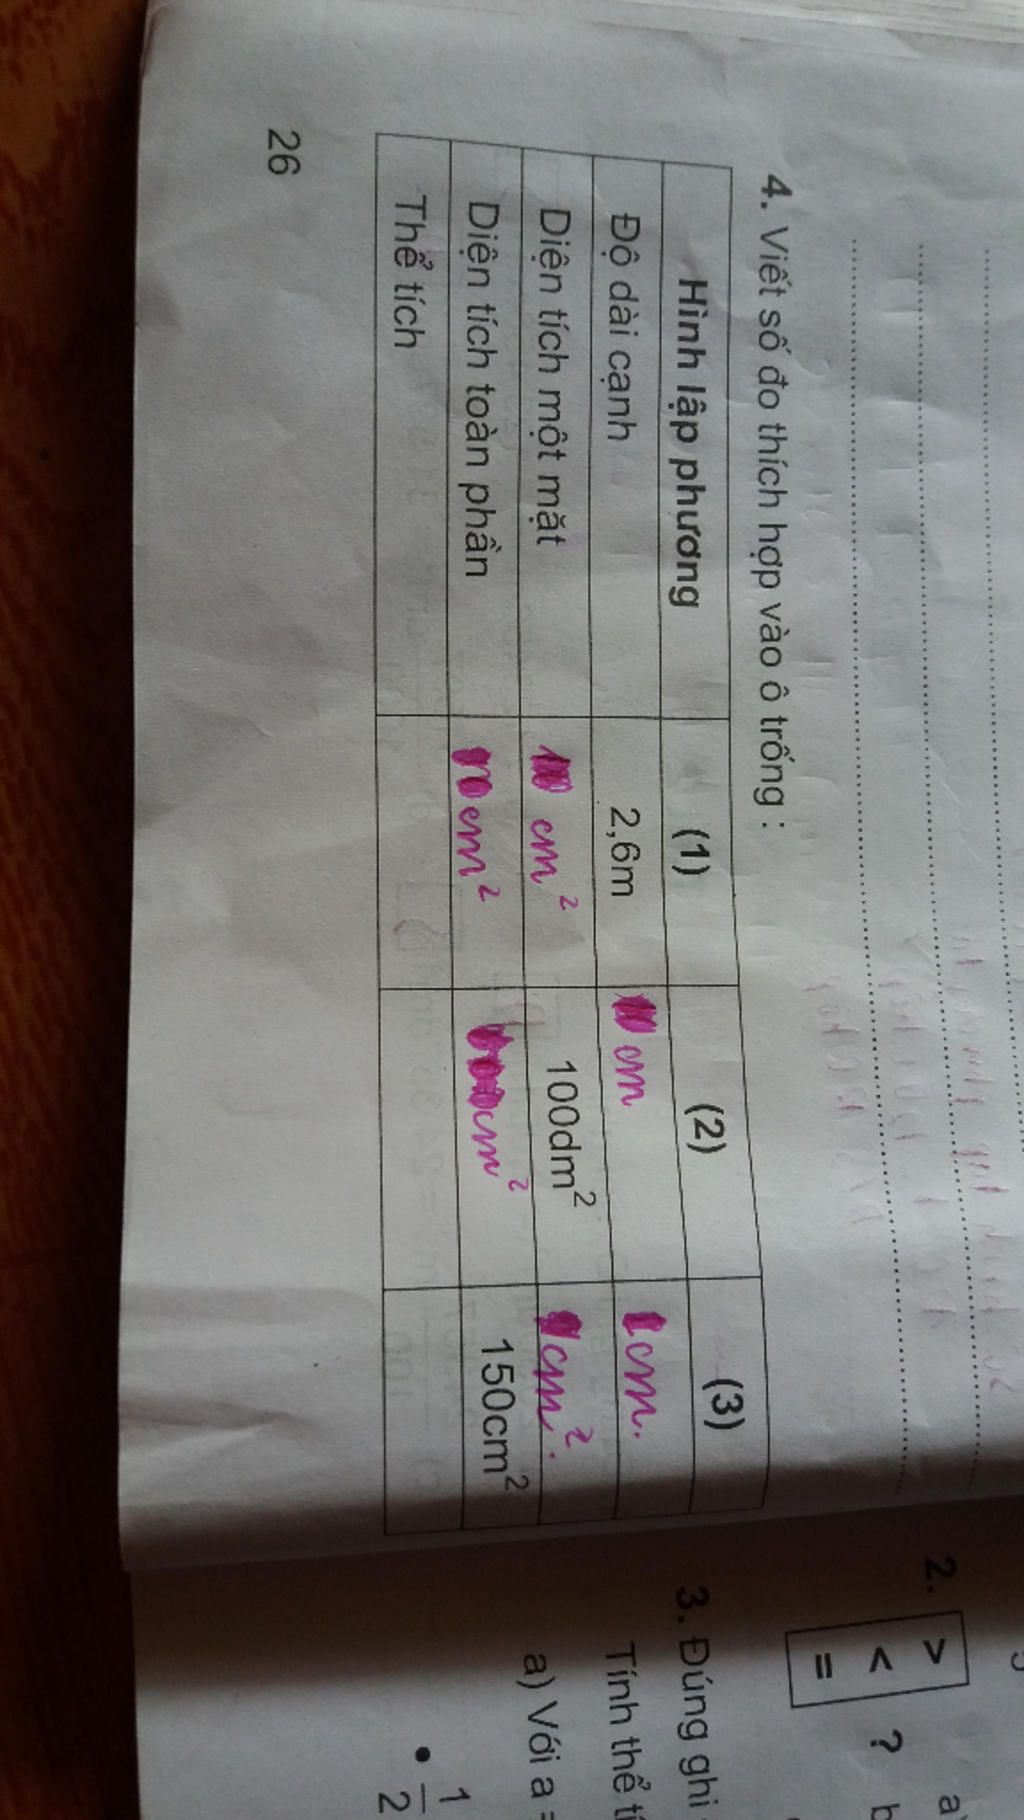 4. Viết số đo thích hợp vào ô trống :
Hình lập phương (1) (2) (3)
Độ dài cạnh 2,6m cm cm.
Diện tích một mặt cm² 100dm² cm².
Diện tích toàn phần cm² cm² 150cm²
Thể tích
26
2. > < = ?
3. Đúng ghi
Tính thể
a) Với a =
• 1/2